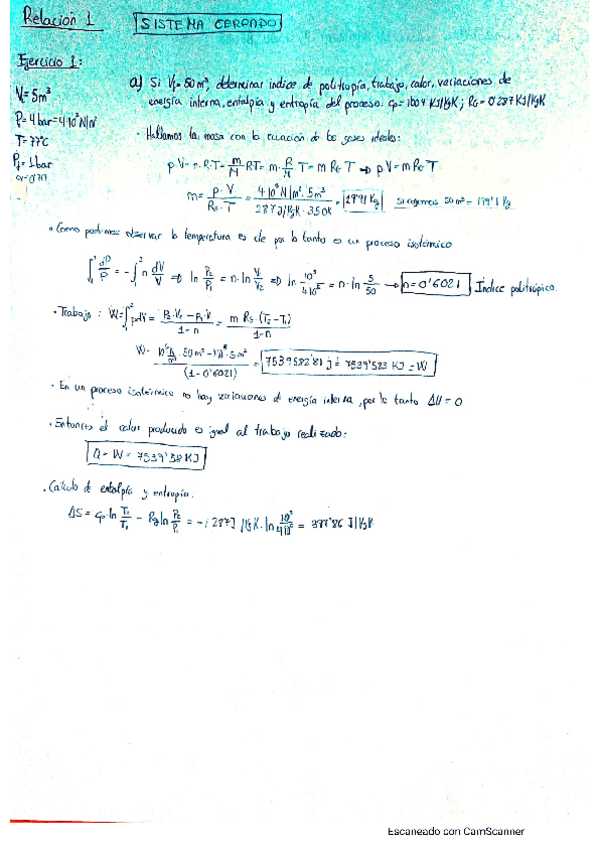 Relación 1
SISTEMA CERRADO
Ejercicio 1:
V₁= 5m³
P= 4 bar= 4·10⁵ N/m²
T= 77ºC
P₂= 1 bar
a) Si V₂= 50m³, determinar índice de politropía, trabajo, calor, variaciones de
energía interna, entalpía y entropía del proceso. cp= 1004 KJ/KgK ; RG= 0'287 KJ/KgK
· Hallamos la masa con la ecuación de los gases ideales:
p·V= n·R·T= m/M RT= m·R/M T → pV= m RG T
m= p·V/RG·T = 4·10⁵ N/m²·5m³/287 J/KgK·350K =
· Como podemos observar la temperatura es cte por lo tanto es un proceso isotérmico
∫ dP/P = -∫ n dV/V ⇒ ln P₂/P₁ = n·ln V₁/V₂ ⇒ ln 10⁵/4·10⁵ = n·ln 5/50 → n= 0'6021 Índice politrópico.
· Trabajo: W= ∫ pdV = P₂·V₂ - P₁·V₁/1-n = m RG·(T₂-T₁)/1-n
(1-0'6021) = 7539582'81 j = 7539'583 KJ = W
· En un proceso isotérmico no hay variaciones de energía interna, por lo tanto ΔU = 0
· Entonces el calor producido es igual al trabajo realizado:
Q = W = 7539'58 KJ
· Cálculo de entalpía y entropía:
ΔS = cp·ln T₂/T₁ - Rg ln P₂/P₁ = -(287J/KgK·ln 10⁵/4·10⁵ = 397'86 J/KgK
Escaneado con CamScanner